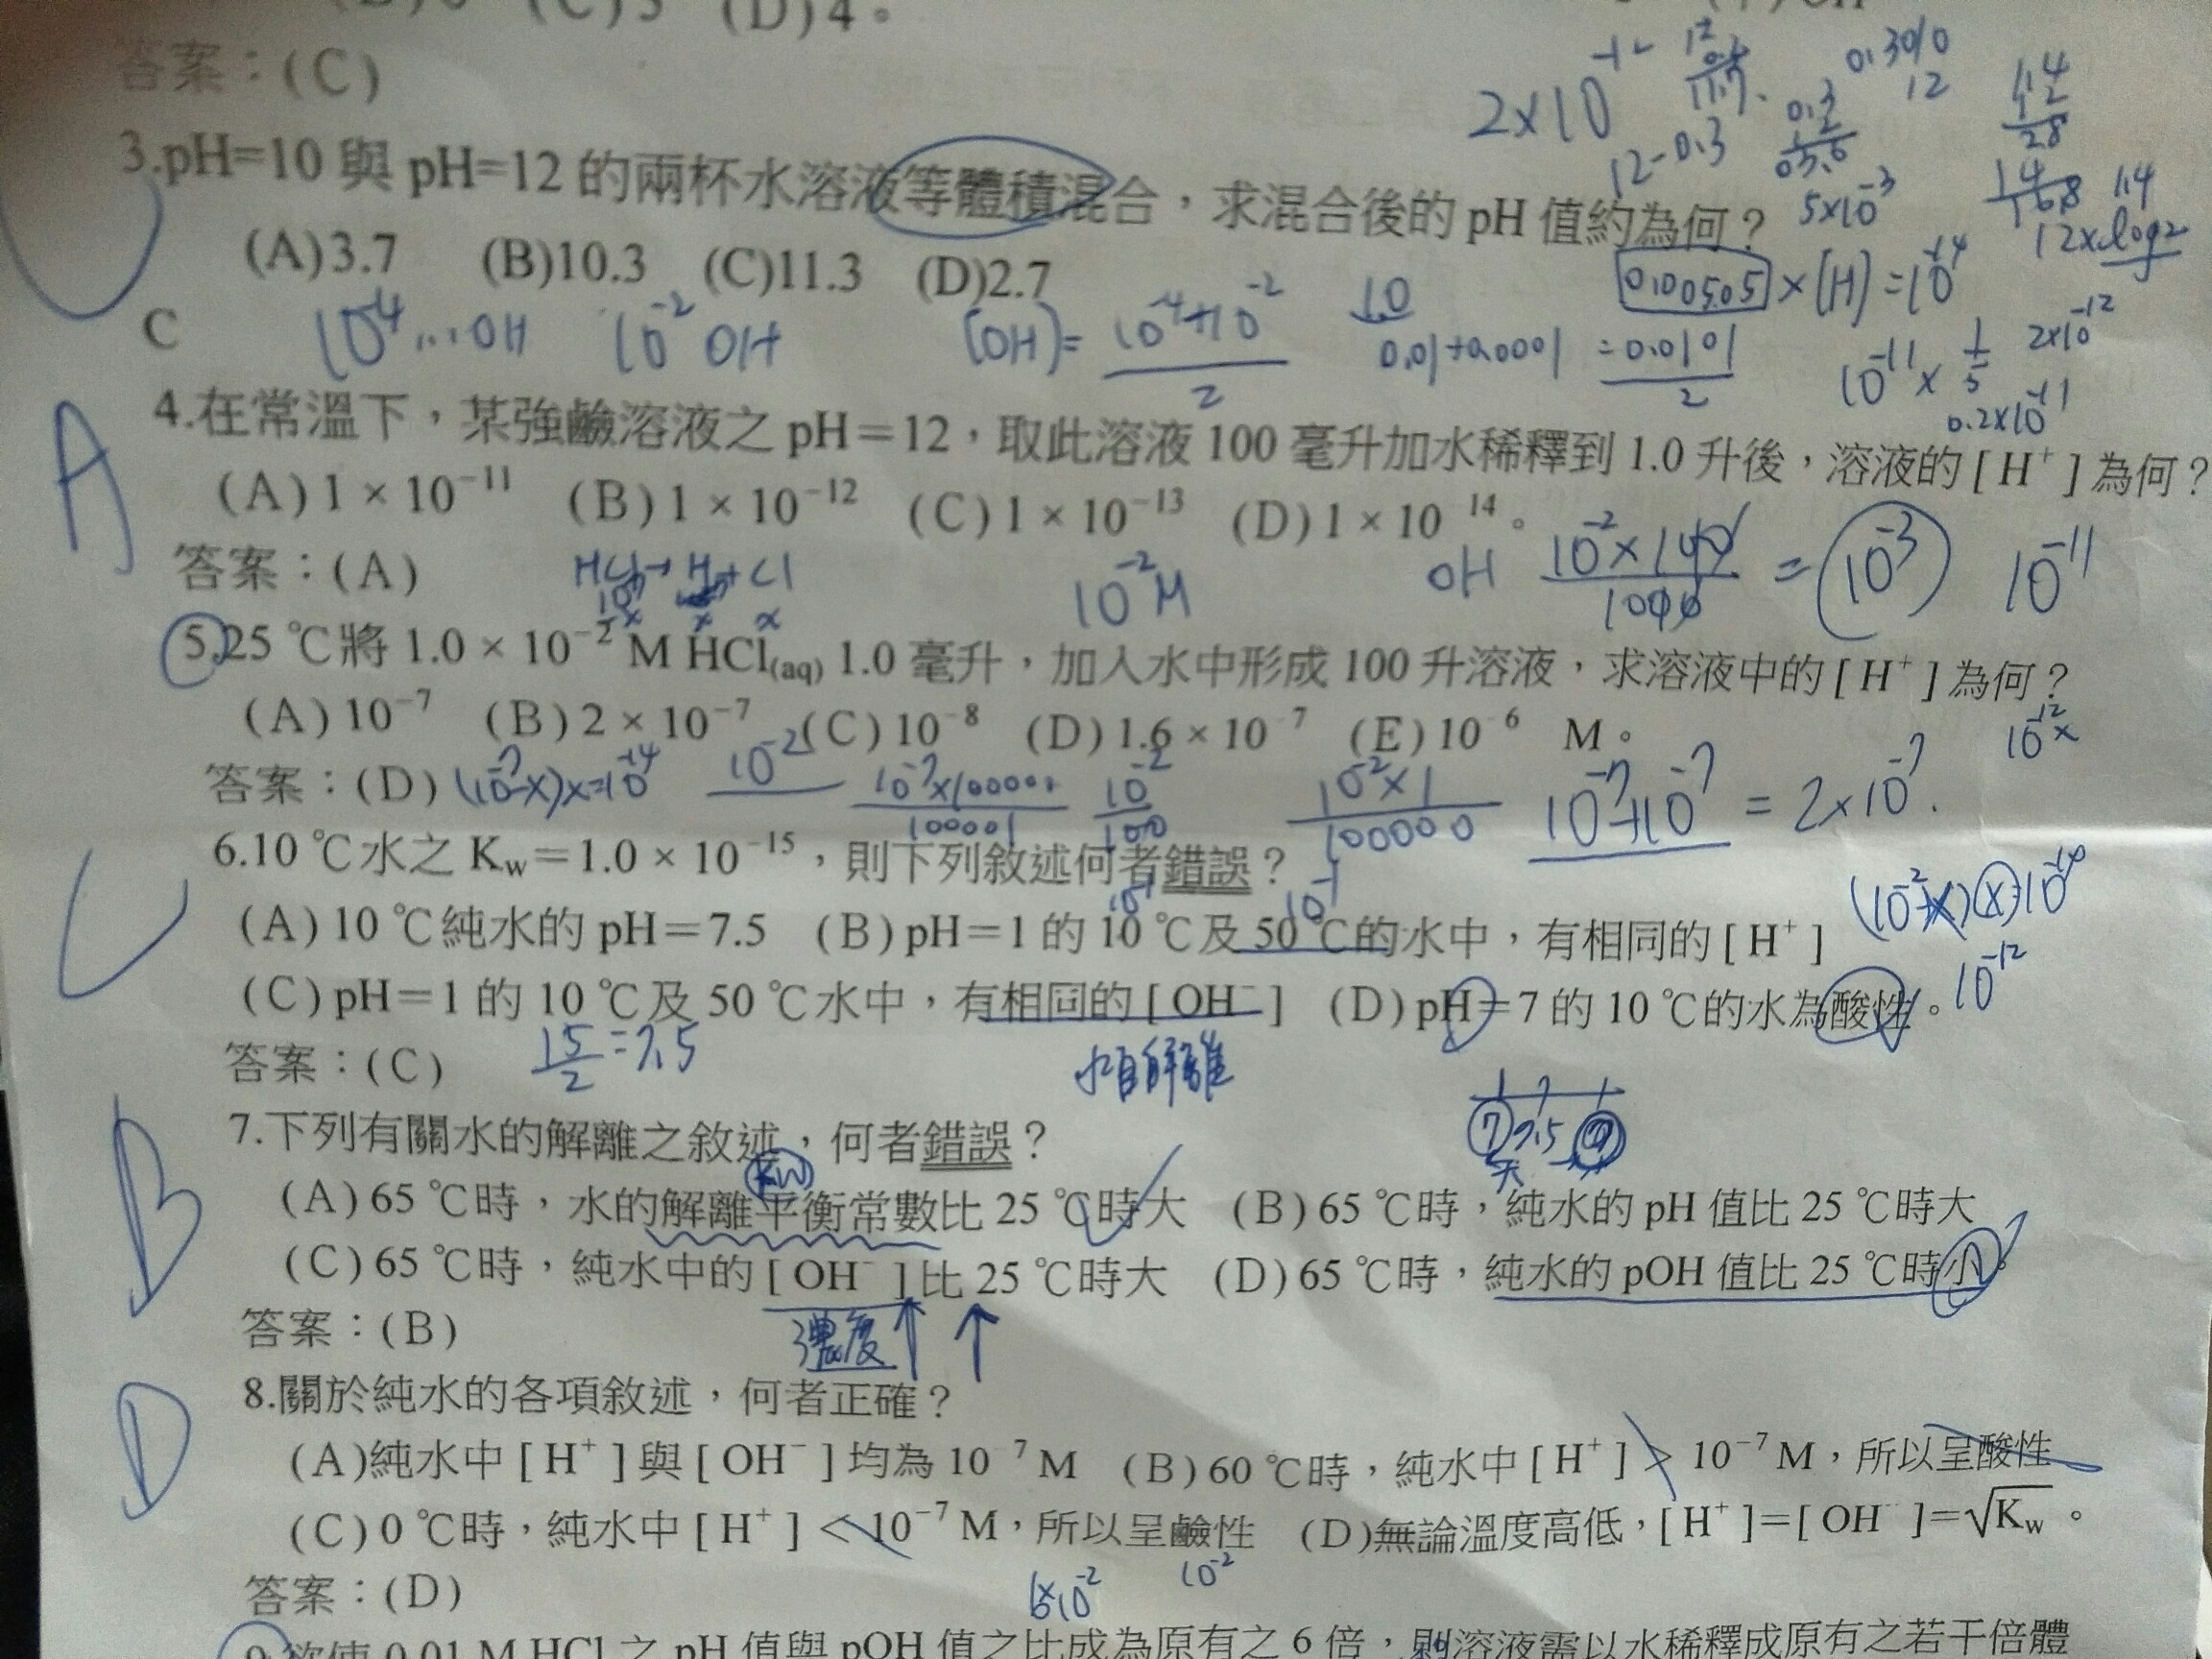 (D)4。
答案：(C)
3.pH=10 與 pH=12 的兩杯水溶液等體積混合，求混合後的 pH 值約為何？
(A)3.7 (B)10.3 (C)11.3 (D)2.7
C
10⁻⁴...OH 10⁻² OH [OH]= 10⁻⁴+10⁻² / 2 0.01+0.0001 = 0.0101 / 2
2×10⁻¹²
12-0.3
0.3010
12
5×10⁻³
12×log2
0.00505 × [H] = 10⁻¹⁴
10⁻¹¹ × 1/5 2×10⁻¹²
0.2×10⁻¹¹
A
4.在常溫下，某強鹼溶液之 pH＝12，取此溶液 100 毫升加水稀釋到 1.0 升後，溶液的［H⁺］為何？
(A)1 × 10⁻¹¹ (B)1 × 10⁻¹² (C)1 × 10⁻¹³ (D)1 × 10 ¹⁴。
答案：(A)
HCl→H+Cl 10⁻²M OH 10⁻²×100 / 1000 = 10⁻³ 10⁻¹¹
5.25 ℃將 1.0 × 10⁻² M HCl(aq) 1.0 毫升，加入水中形成 100 升溶液，求溶液中的［H⁺］為何？
(A)10⁻⁷ (B)2 × 10⁻⁷ (C)10⁻⁸ (D)1.6 × 10⁻⁷ (E)10⁻⁶ M。
答案：(D) (10⁻⁷-x)x=10⁻¹⁴ 10⁻² 10⁻²×1 / 100000 10⁻⁷+10⁻⁷ = 2×10⁻⁷
6.10 ℃水之 Kw＝1.0 × 10⁻¹⁵，則下列敘述何者錯誤？
(A)10 ℃純水的 pH＝7.5 (B)pH＝1 的 10 ℃及 50 ℃的水中，有相同的［H⁺］
10⁻¹ 10⁻¹
10⁻¹²
(C)pH＝1 的 10 ℃及 50 ℃水中，有相同的［OH⁻］ (D)pH＝7 的 10 ℃的水為酸性。
答案：(C)
15/2=7.5 水自解離
7 7.5
B
7.下列有關水的解離之敘述，何者錯誤？
Kw
(A)65 ℃時，水的解離平衡常數比 25 ℃時大 (B)65 ℃時，純水的 pH 值比 25 ℃時大
(C)65 ℃時，純水中的［OH⁻］比 25 ℃時大 (D)65 ℃時，純水的 pOH 值比 25 ℃時小。
答案：(B)
濃度↑ ↑
D
8.關於純水的各項敘述，何者正確？
(A)純水中［H⁺］與［OH⁻］均為 10⁻⁷ M (B)60 ℃時，純水中［H⁺］＞ 10⁻⁷ M，所以呈酸性
(C)0 ℃時，純水中［H⁺］＜ 10⁻⁷ M，所以呈鹼性 (D)無論溫度高低，［H⁺］=［OH⁻］=√Kw。
答案：(D)
6×10⁻² 10⁻²
9.欲使 0.01 M HCl 之 pH 值與 pOH 值之比成為原有之 6 倍，則溶液需以水稀釋成原有之若干倍體